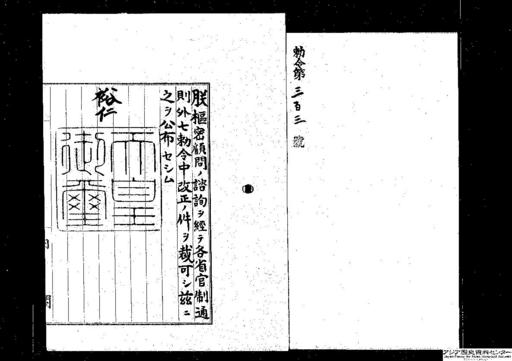 勅令第三百三號
朕樞密顧問ノ諮詢ヲ經テ各省官制通
則外七勅令中改正ノ件ヲ裁可シ茲ニ
之ヲ公布セシム
裕仁
天皇
御璽
内閣
アジア歴史資料センター